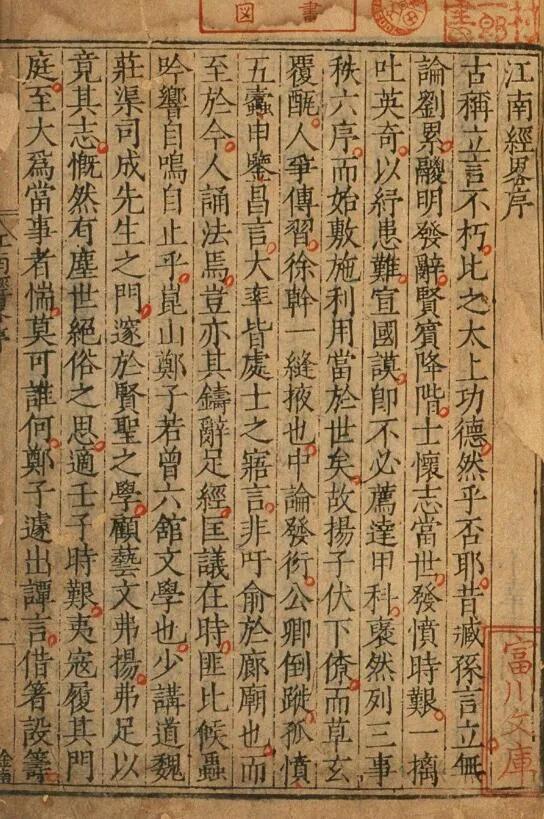 江南經畧序
古稱立言不朽比之太上功德然乎否耶昔臧孫言立無
論劉累鬷明發辭賢賓降階士懷志當世發憤時艱一摛
吐英奇以紓患難宣國謨卽不必薦達甲科褎然列三事
秩六序而始敷施利用當於世矣故揚子伏下僚而草玄
覆酼人爭傳習徐幹一縫掖也中論發衒公卿倒蹝孤憤
五蠹申鑒昌言大率皆處士之寤言非吁俞於廊廟也而
至於今人誦法焉豈亦其鑄辭足經匡議在時匪比候蟲
吟響自鳴自止乎崑山鄭子若曾六舘文學也少講道魏
莊渠司成先生之門邃於賢聖之學顧藝文弗揚弗足以
竟其志慨然有塵世絕俗之思適壬子時艱夷寇履其門
庭至大爲當事者惴莫可誰何鄭子遽出譚言借箸設籌
圖書
富川文庫